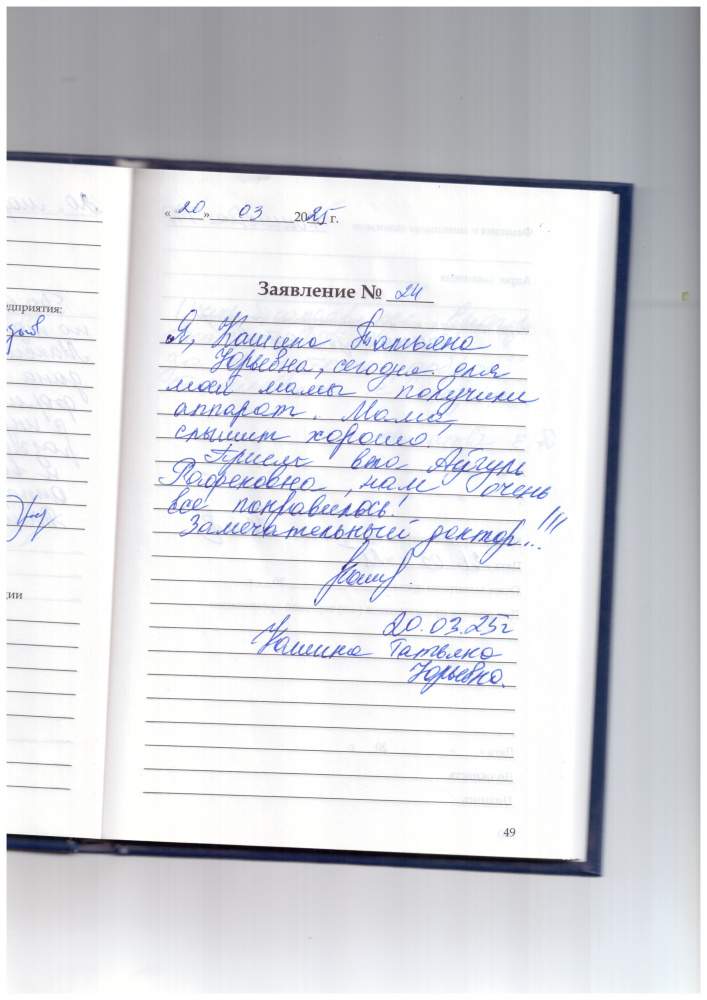 «20» 03 2025 г.
Заявление № 24
Я, Кашина Татьяна
Юрьевна, сегодня для
моей мамы получили
аппарат. Мама
слышит хорошо!
Прием вела Айгуль
нам очень
все понравилось!
Замечательный доктор...!!!
20.03.25г
Кашина Татьяна
Юрьевна.
49
едприятия:
ции